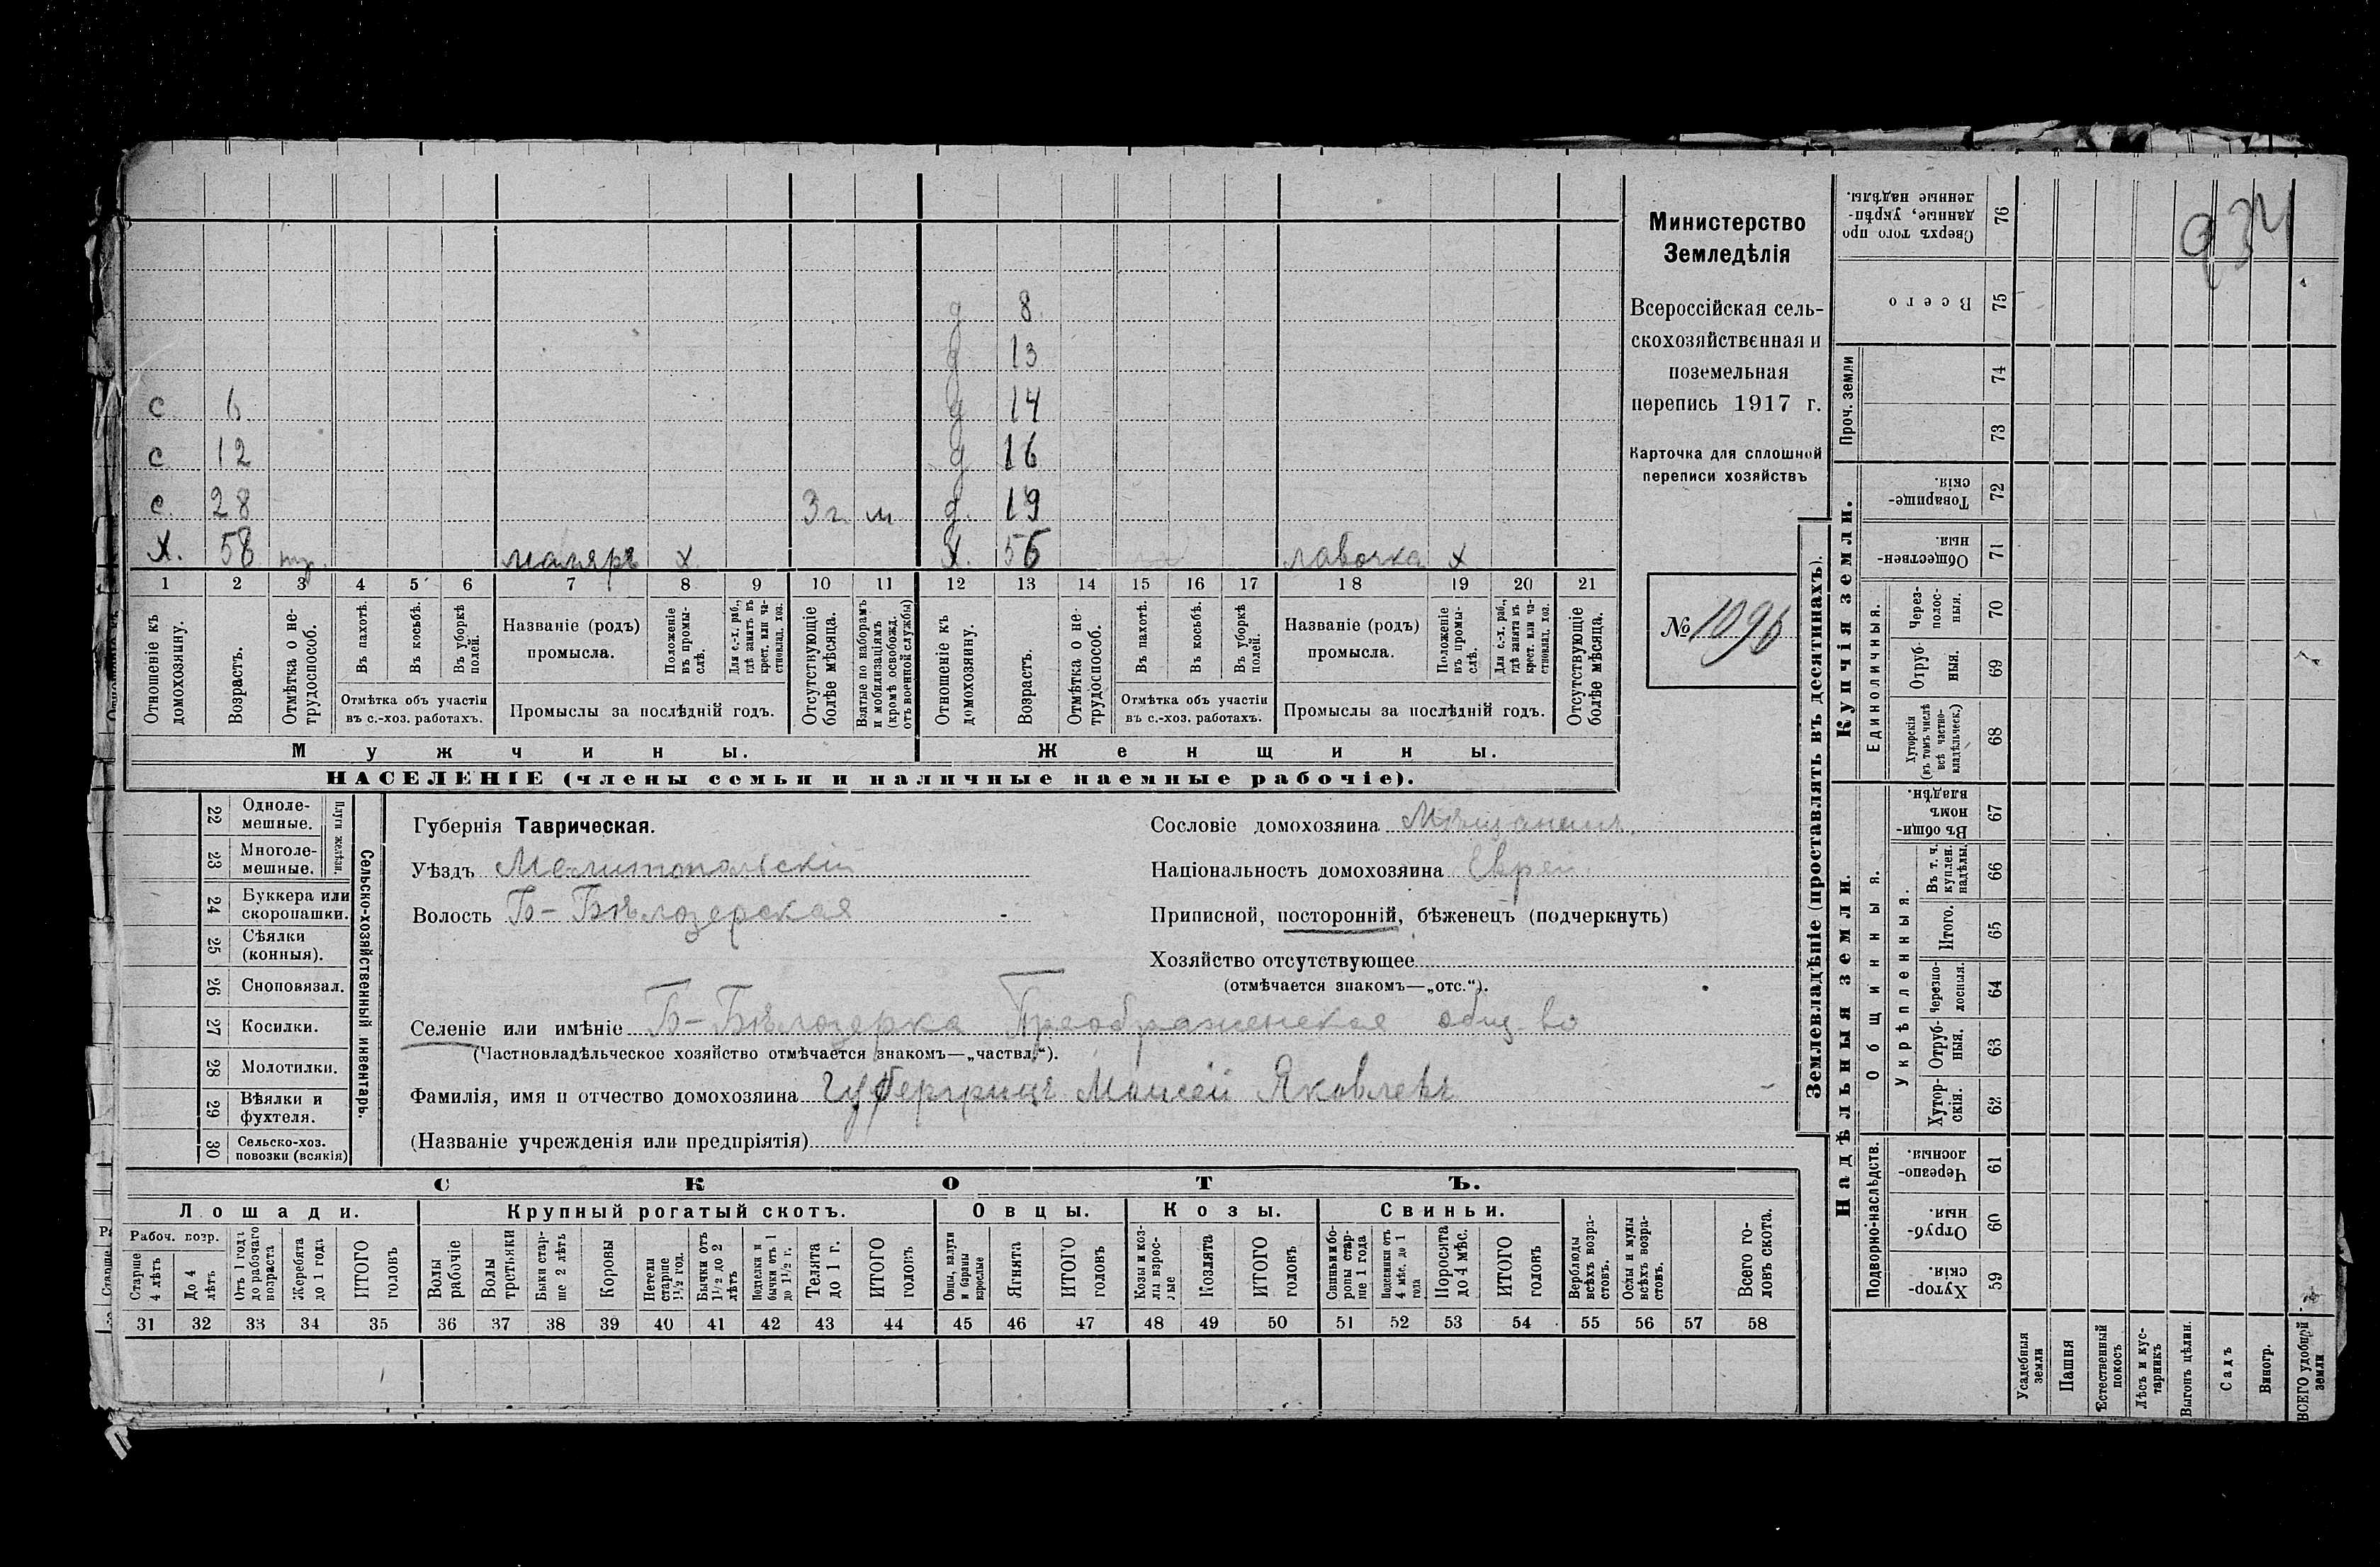 934
д 8
д 13
с 6 д 14
с 12 д 16
с. 28 3 г. м д. 19
Х. 58 маляръ х Х. 56 лавочка х
1 2 3 4 5 6 7 8 9 10 11 12 13 14 15 16 17 18 19 20 21
Отношеніе къ домохозяину.
Возрастъ.
Отмѣтка о не-трудоспособ.
Въ пахотѣ.
Въ косьбѣ.
Въ уборкѣ полей.
Отмѣтка объ участіи
въ с.-хоз. работахъ.
Названіе (родъ)
промысла.
Положеніе въ промы-слѣ.
Для с.-х. раб., гдѣ занятъ въ крест. или ча-стновлад. хоз.
Промыслы за послѣдній годъ.
Отсутствующіе болѣе мѣсяца.
Взятые по наборамъ и мобилизаціямъ (кромѣ освобожд. отъ военной службы)
Отношеніе къ домохозяину.
Возрастъ.
Отмѣтка о не-трудоспособ.
Въ пахотѣ.
Въ косьбѣ.
Въ уборкѣ полей.
Отмѣтка объ участіи
въ с.-хоз. работахъ.
Названіе (родъ)
промысла.
Положеніе въ промы-слѣ.
Для с.-х. раб., гдѣ занята въ крест. или ча-стновлад. хоз.
Промыслы за послѣдній годъ.
Отсутствующіе болѣе мѣсяца.
Мужчины. Женщины.
НАСЕЛЕНІЕ (члены семьи и наличные наемные рабочіе).
Министерство
Земледѣлія
Всероссійская сель-
скохозяйственная и
поземельная
перепись 1917 г.
Карточка для сплошной
переписи хозяйствъ
№ 1096
22 Одноле-
мешные.
23 Многоле-
мешные.
Плуги желѣзн.
24 Буккера или
скоропашки.
25 Сѣялки
(конныя).
26 Сноповязал.
27 Косилки.
28 Молотилки.
29 Вѣялки и
фухтеля.
30 Сельско-хоз.
повозки (всякія)
Сельско-хозяйственный инвентарь.
Губернія Таврическая.
Уѣздъ Мелитопольскій
Волость Б-Бѣлозерская
Сословіе домохозяина Мѣщанинъ.
Національность домохозяина Еврей
Приписной, посторонній, бѣженецъ (подчеркнуть)
Хозяйство отсутствующее
(отмѣчается знакомъ—„отс.“).
Селеніе или имѣніе Б-Бѣлозерка Преображенское общ-во
(Частновладѣльческое хозяйство отмѣчается знакомъ—„частвл.“).
Фамилія, имя и отчество домохозяина Губергрицъ Моисей Яковлевъ
(Названіе учрежденія или предпріятія)
СКОТЪ.
Лошади. Крупный рогатый скотъ. Овцы. Козы. Свиньи.
Рабоч. возр.
Старше 4 лѣтъ
До 4 лѣтъ
Отъ 1 года до рабочаго возраста
Жеребята до 1 года
ИТОГО головъ
Волы рабочіе
Волы третьяки
Быки стар-ше 2 лѣтъ
Коровы
Нетели старше 1½ год.
Бычки отъ 1½ до 2 лѣтъ
Подтелки и бычки отъ 1 до 1½ г.
Телята до 1 г.
ИТОГО головъ
Овцы, валухи и бараны взрослые
Ягнята
ИТОГО головъ
Козы и коз-лы взрос-лые
Козлята
ИТОГО головъ
Свиньи и бо-ровы стар-ше 1 года
Подсвинки отъ 4 мѣс. до 1 года
Поросята до 4 мѣс.
ИТОГО головъ
Верблюды всѣхъ возра-стовъ.
Ослы и мулы всѣхъ возра-стовъ.
Всего го-ловъ скота.
31 32 33 34 35 36 37 38 39 40 41 42 43 44 45 46 47 48 49 50 51 52 53 54 55 56 57 58
Землевладѣніе (проставлять въ десятинахъ).
Купчія земли.
Надѣльныя земли.
Проч. земли
Единоличныя.
Общинныя.
Укрѣпленныя.
Подворно-наслѣдств.
Сверхъ того про данные, укрѣп-ленные надѣлы. 76
Всего 75
74
73
Товарище-скія. 72
Обществен-ныя. 71
Через-полос-ныя. 70
Отруб-ныя. 69
Хуторскія (въ томъ числѣ всѣ частно-владѣльческ.) 68
Въ общи-номъ владѣн. 67
Въ т. ч. куплен. надѣлы. 66
Итого. 65
Черезпо-лосныя. 64
Отруб-ныя. 63
Хутор-скія. 62
Черезпо-лосныя. 61
Отруб-ныя. 60
Хутор-скія. 59
Усадебныя земли
Пашня
Естественный покосъ
Лѣсъ и кус-тарникъ
Выгонъ цѣлин.
Садъ
Виногр.
ВСЕГО удобной земли